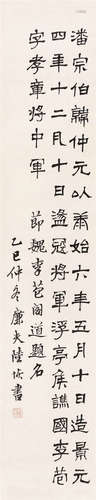 潘宗伯韓仲元以泰始六年五月十日造景元
四年十二月十日盪寇將軍浮亭侯譙國李苞
字孝章將中軍 節魏李苞閣道題名
乙巳仲冬廉夫陸恢書